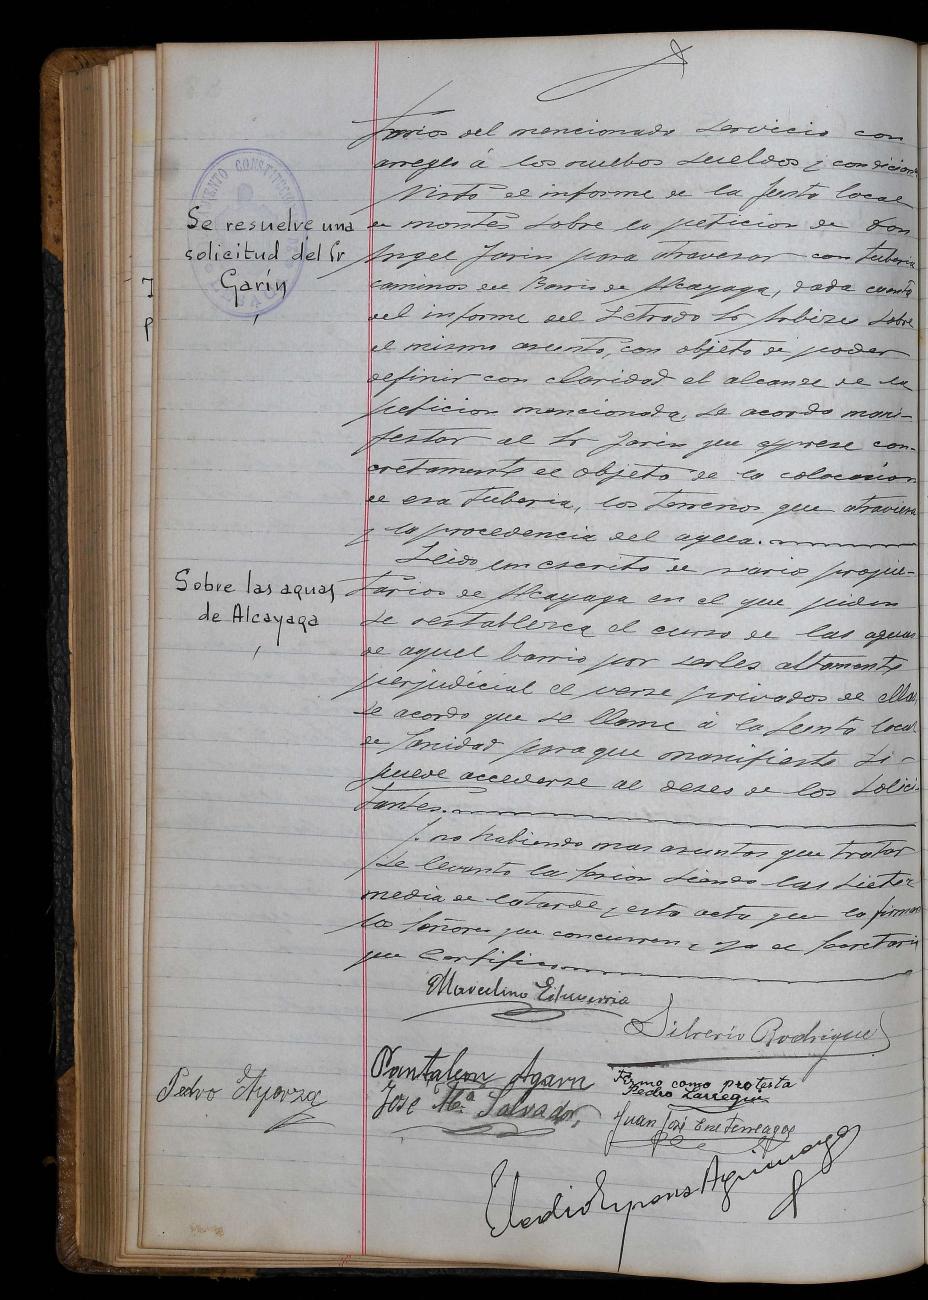 narios del mencionado servicio con
arreglo á los nuebos sueldos y condicion
Visto el informe de la Junta local
de montes sobre la peticion de Don
Angel Garin para atravesar con tuberia
caminos en Barrio de Alcayaga, dada cuenta
del informe del Letrado Sr sobre
el mismo asunto, con objeto de poder
definir con claridad el alcanze de la
peticion mencionada, se acordo mani-
festar al Sr Garin que exprese con-
cretamente el objeto de la colocacion
de esa tuberia, los terrenos que atraviesa
y la procedencia del agua.
Leido un escrito de vario propie-
tarios de Alcayaga en el que piden
se restablezca el curso de las aguas
de aquel barrio por serles altamente
perjudicial el verse privados de ellas,
se acordo que se llame á la Junta local
de Sanidad para que manifieste si
puede accederse al deseo de los solici-
tantes.
Y no habiendo mas asuntos que tratar
se levanto la sesion siendo las siete y
media de la tarde y esta acta que la firman
los Señores que concurren y yo el Secretario
que Certifico
Se resuelve una
solicitud del Sr
Garín
Sobre las aguas
de Alcayaga
Marcelino Echeverria
Silverio Rodriguez
Pantaleon Agara
Firmo como protesta
Pedro Larregui
Pedro Oyarzq
José Mª Salvador
Juan José
Eladio Esparza Aguinaga